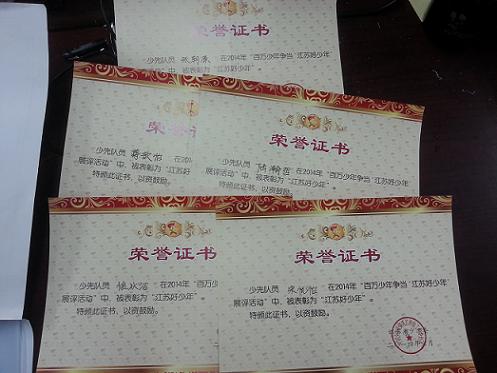 荣誉证书
少先队员 在2014年“百万少年争当‘江苏好少年’
展评活动”中，被表彰为“江苏好少年”。
荣誉证书
少先队员 在201
展评活动”中，被表彰为“江苏好
特颁此证书，以资鼓励。
荣誉证书
少先队员 在2014年“百万少年争当‘江苏好少年’
展评活动”中，被表彰为“江苏好少年”。
特颁此证书，以资鼓励。
荣誉证书
少先队员 在2014年“百万少
展评活动”中，被表彰为“江苏好少年”。
特颁此证书，以资鼓励。
荣誉证书
少先队员 在2014年“百万少年争当‘江苏好少年’
展评活动”中，被表彰为“江苏好少年”。
特颁此证书，以资鼓励。